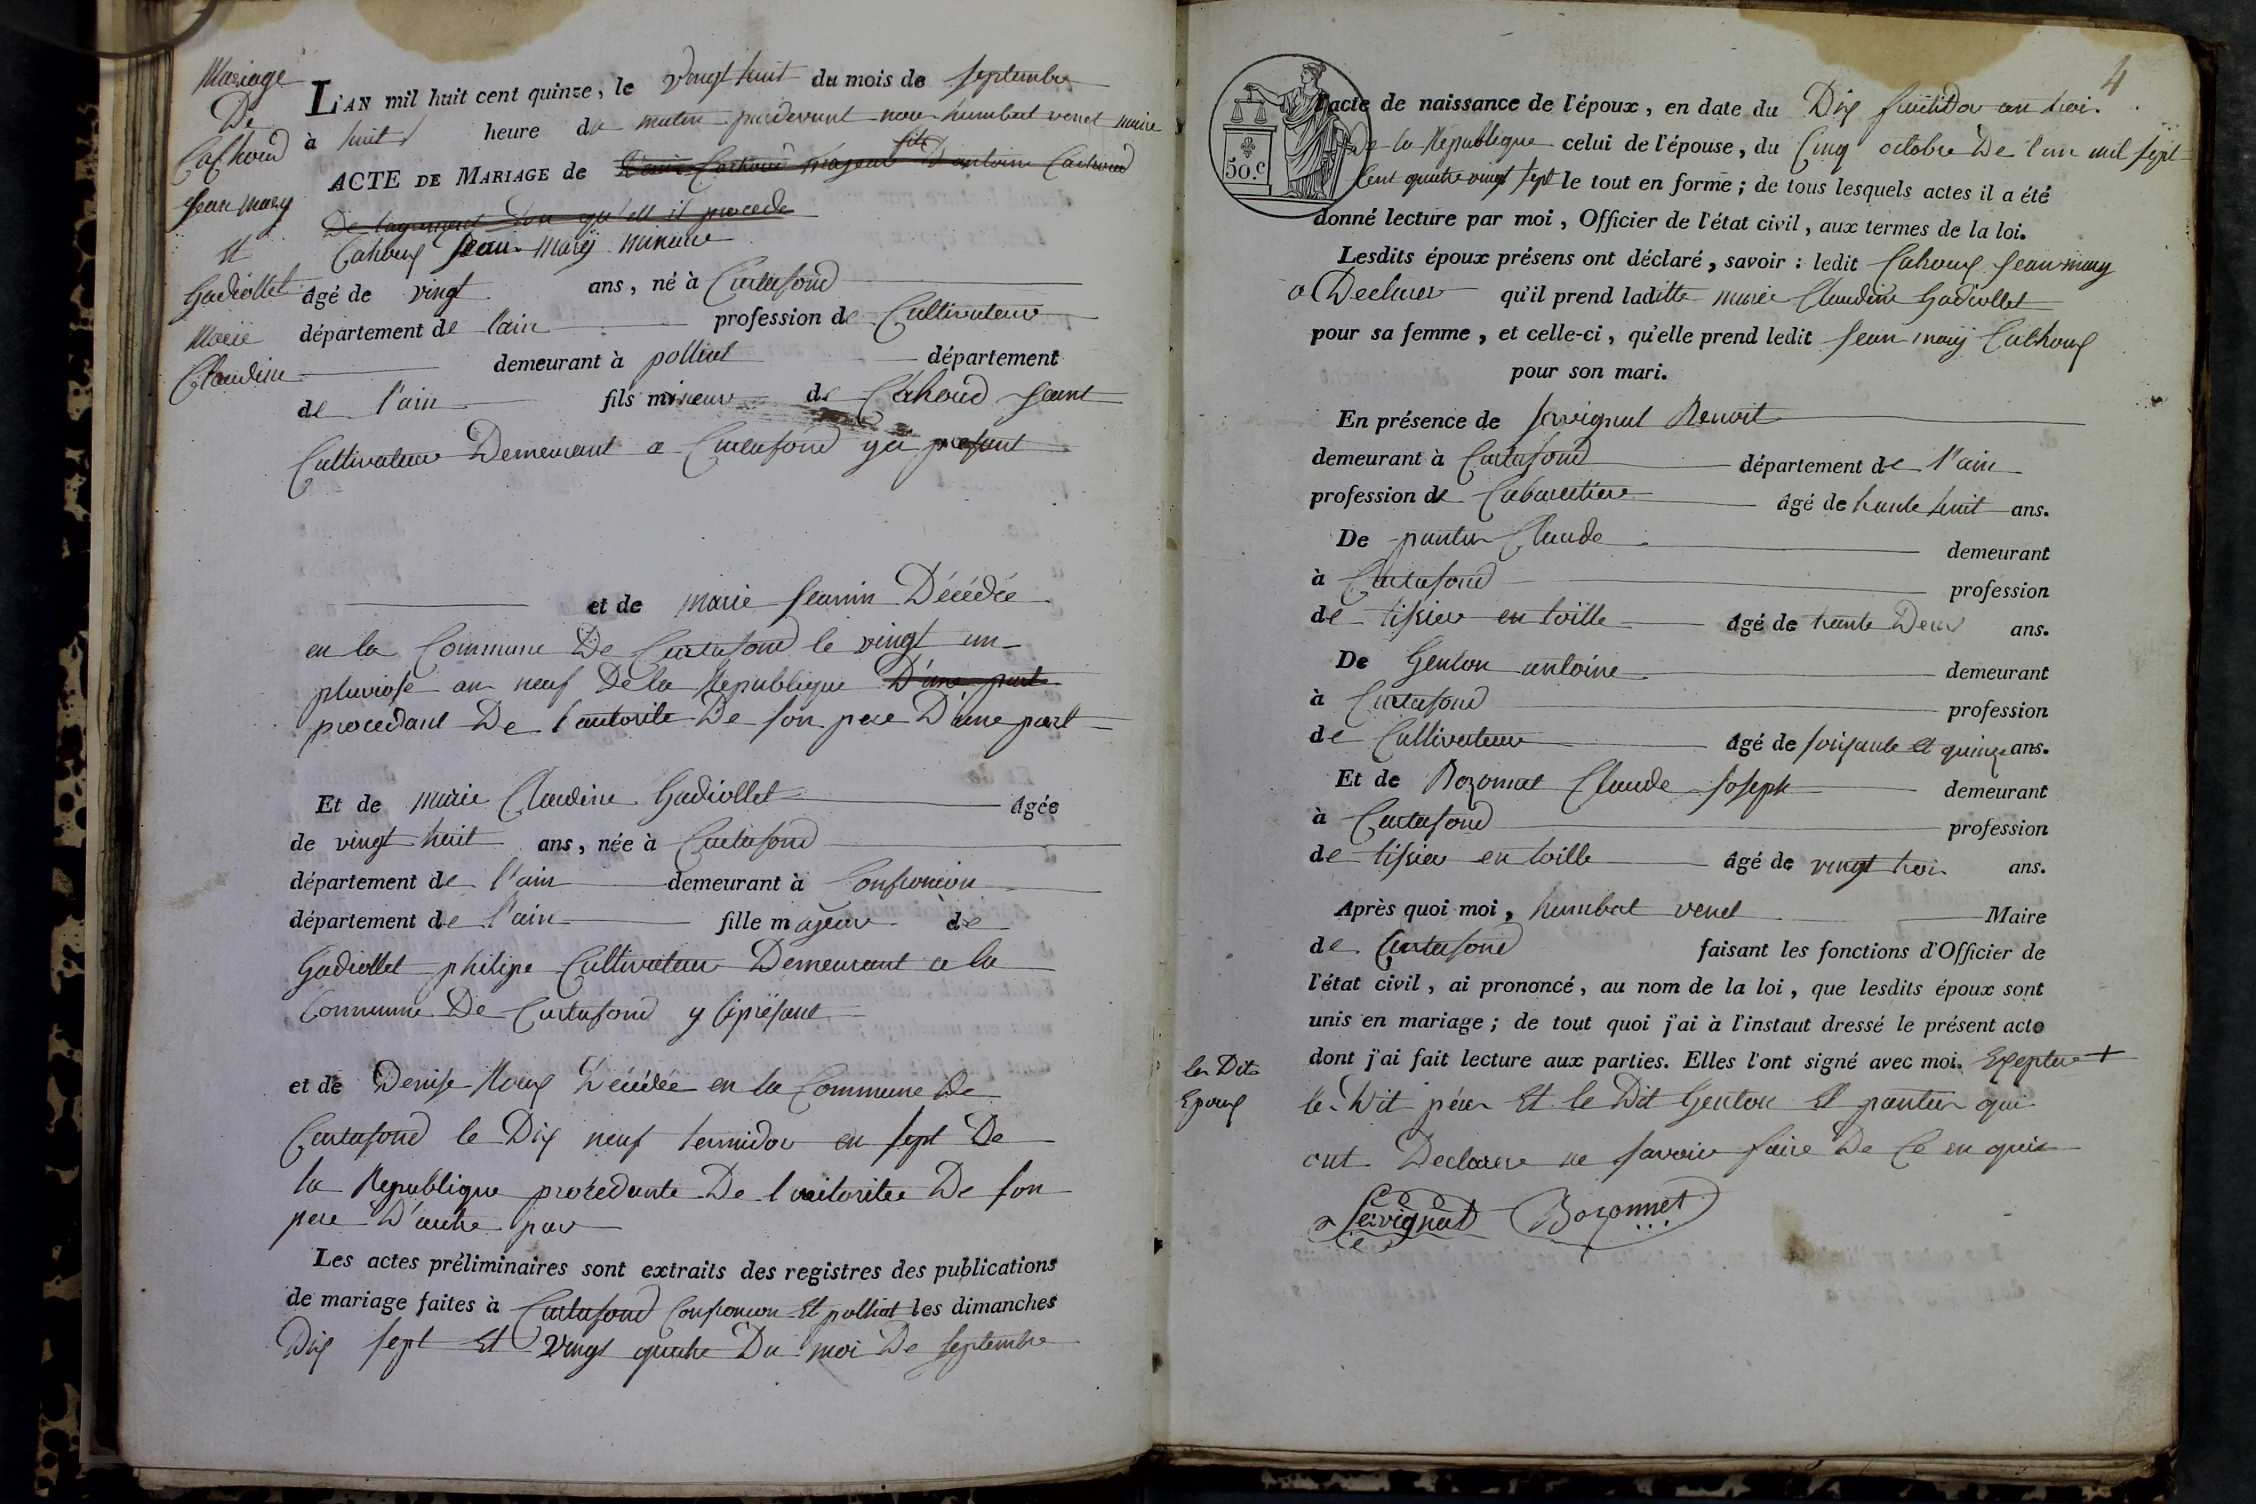 Mariage
De
Cathoud
Jean mary
et
Gadiollet
Marie
Claudine
L'AN mil huit cent quinze, le vingt huit du mois de septembre
à huit heure du matin pardevant nou humbert venet maire
ACTE DE MARIAGE de
Cahoux Jean mary mineure
âgé de vingt ans, né à Curtafond
département de l'ain profession de Cultivateur
demeurant à polliat département
de l'ain fils mineur de Cahoud
Cultivateur Demeurant a Curtafond
et de marie Jeanin Décédée
en la Commune De Curtafond le vingt un
pluviose an neuf De la Republique D'une part
procedant De l'autorite De son pere D'une part
Et de marie Claudine Gadiollet âgée
de vingt huit ans, née à Curtafond
département de l'ain demeurant à Confroncon
département de l'ain fille majeur de
Gadiollet philipe Cultivateur Demeurant a la
Commune De Curtafond y présant
et de Denise Roux Décédée en la Commune De
Curtafond le Dix neuf termidor en sept De
la Republique procedante De l'autoritee De son
pere D'autre par
Les actes préliminaires sont extraits des registres des publications
de mariage faites à Curtafond Confroncon Et polliat les dimanches
Dix sept Et vingt quatre Du moi De septembre
4
50.c
l'acte de naissance de l'époux, en date du Dix an troi
De la Republique celui de l'épouse, du Cinq octobre De l'an mil sept
Cent quatre vingt sept le tout en forme; de tous lesquels actes il a été
donné lecture par moi, Officier de l'état civil, aux termes de la loi.
Lesdits époux présens ont déclaré, savoir : ledit Cahoux Jean mary
a Declarer qu'il prend laditte marie Claudine Gadiollet
pour sa femme, et celle-ci, qu'elle prend ledit Jean mary Cathoux
pour son mari.
En présence de Servignat Benoit
demeurant à Curtafond département de l'ain
profession de Cabaretier âgé de trante huit ans.
De pantin Claude demeurant
à Curtafond profession
de tisier en toille âgé de trante Deux ans.
De Genton antoine demeurant
à Curtafond profession
de Cultivateur âgé de soisante et quinze ans.
Et de Bozonnet Claude Joseph demeurant
à Curtafond profession
de tisier en toille âgé de vingt troi ans.
Après quoi moi, humbert venet Maire
de Curtafond faisant les fonctions d'Officier de
l'état civil, ai prononcé, au nom de la loi, que lesdits époux sont
unis en mariage; de tout quoi j'ai à l'instaut dressé le présent acte
dont j'ai fait lecture aux parties. Elles l'ont signé avec moi. Exeptue +
les Dits
Epoux
le Dit pére Et le Dit Genton Et pantin qui
ont Declarer ne savoir faire De Ce en quis
Servignat Bozonnet